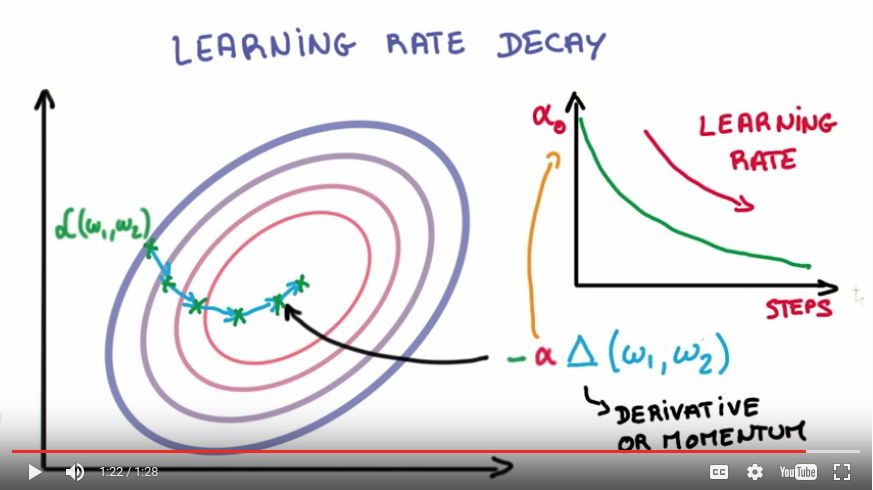 LEARNING RATE DECAY
α₀
LEARNING
RATE
ℒ(ω₁,ω₂)
STEPS
-α Δ(ω₁,ω₂)
DERIVATIVE
OR MOMENTUM
1:22 / 1:28
CC
YouTube